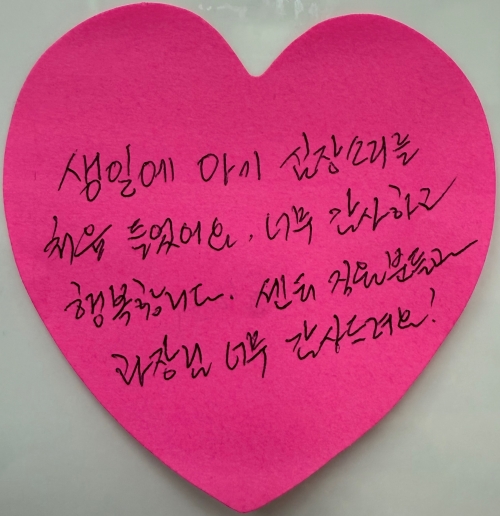 생일에 아기 심장소리를
처음 들었어요. 너무 감사하고
행복합니다. 센터 직원분들과
과장님 너무 감사드려요!